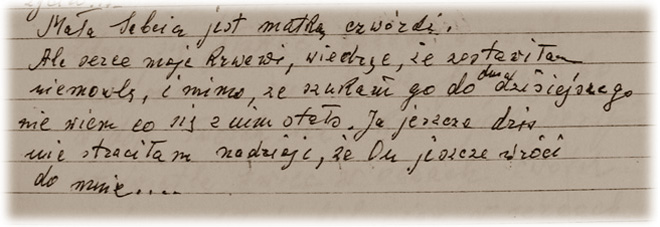 Mała Sebcia jest matką czwórki.
Ale serce moje krwawi, wiedząc, że zostawiłam
niemowlę, i mimo, że szukam go do dnia dzisiejszego
nie wiem co się z nim stało. Ja jeszcze dziś
nie straciłam nadzieji, że On jeszcze wróci
do mnie....